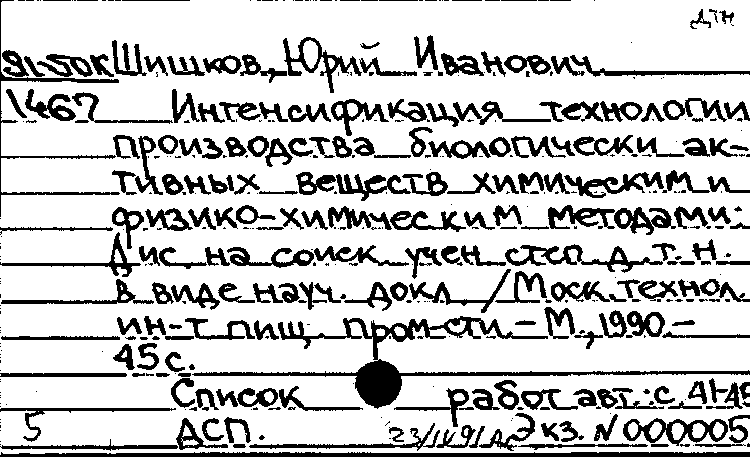 ДТН
91-50К Шишков, Юрий Иванович.
1467 Интенсификация технологии
производства биологически ак-
тивных веществ химическим и
физико-химическим методами:
Дис. на соиск. учен. степ. д.т.н.
в виде науч. докл. / Моск. технол.
ин-т пищ. пром-сти. – М., 1990. –
45 с.
Список работ авт.: с. 41-45
5 ДСП. 23/IV 91 Экз. N 000005